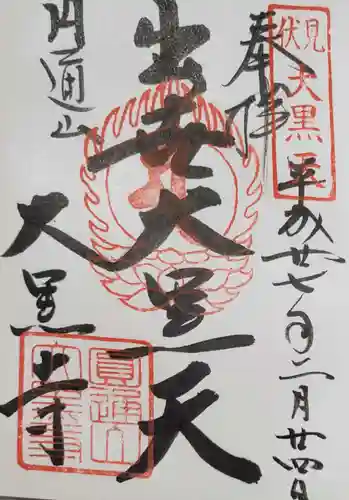 伏見
大黒天
平成廿七年二月廿四日
奉拝
出世大黒天
円通山
大黒寺
圓通山
大黒寺